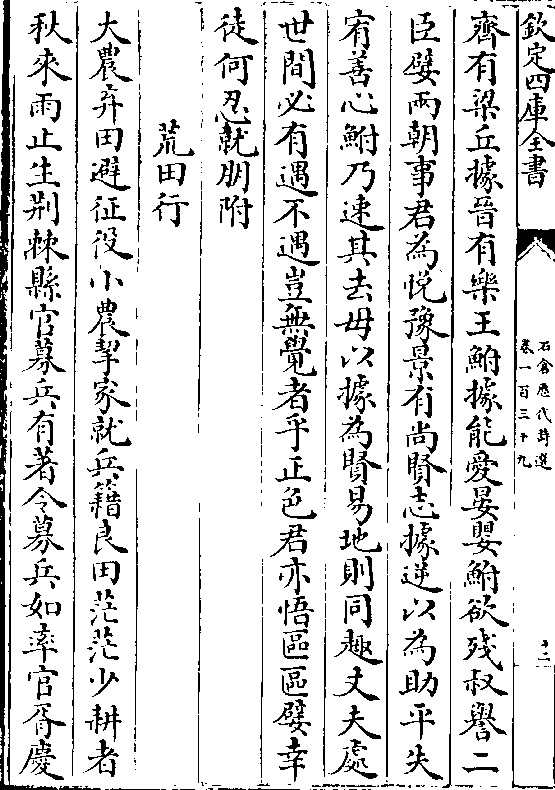 欽定四庫全書
石倉歷代詩選
卷一百三十九
十二
齊有梁丘據晉有樂王鮒據能愛晏嬰鮒欲殘叔譽二
臣嬖兩朝事君為悅豫景有尚賢志據逆以為助平失
宥善心鮒乃速其去毋以據為賢易地則同趣丈夫處
世間必有遇不遇豈無覺者乎正色君亦悟區區嬖幸
徒何忍就朋附
荒田行
大農弃田避征役小農挈家就兵籍良田茫茫少耕者
秋來雨止生荆棘縣官募兵有著令募兵如率官胥慶